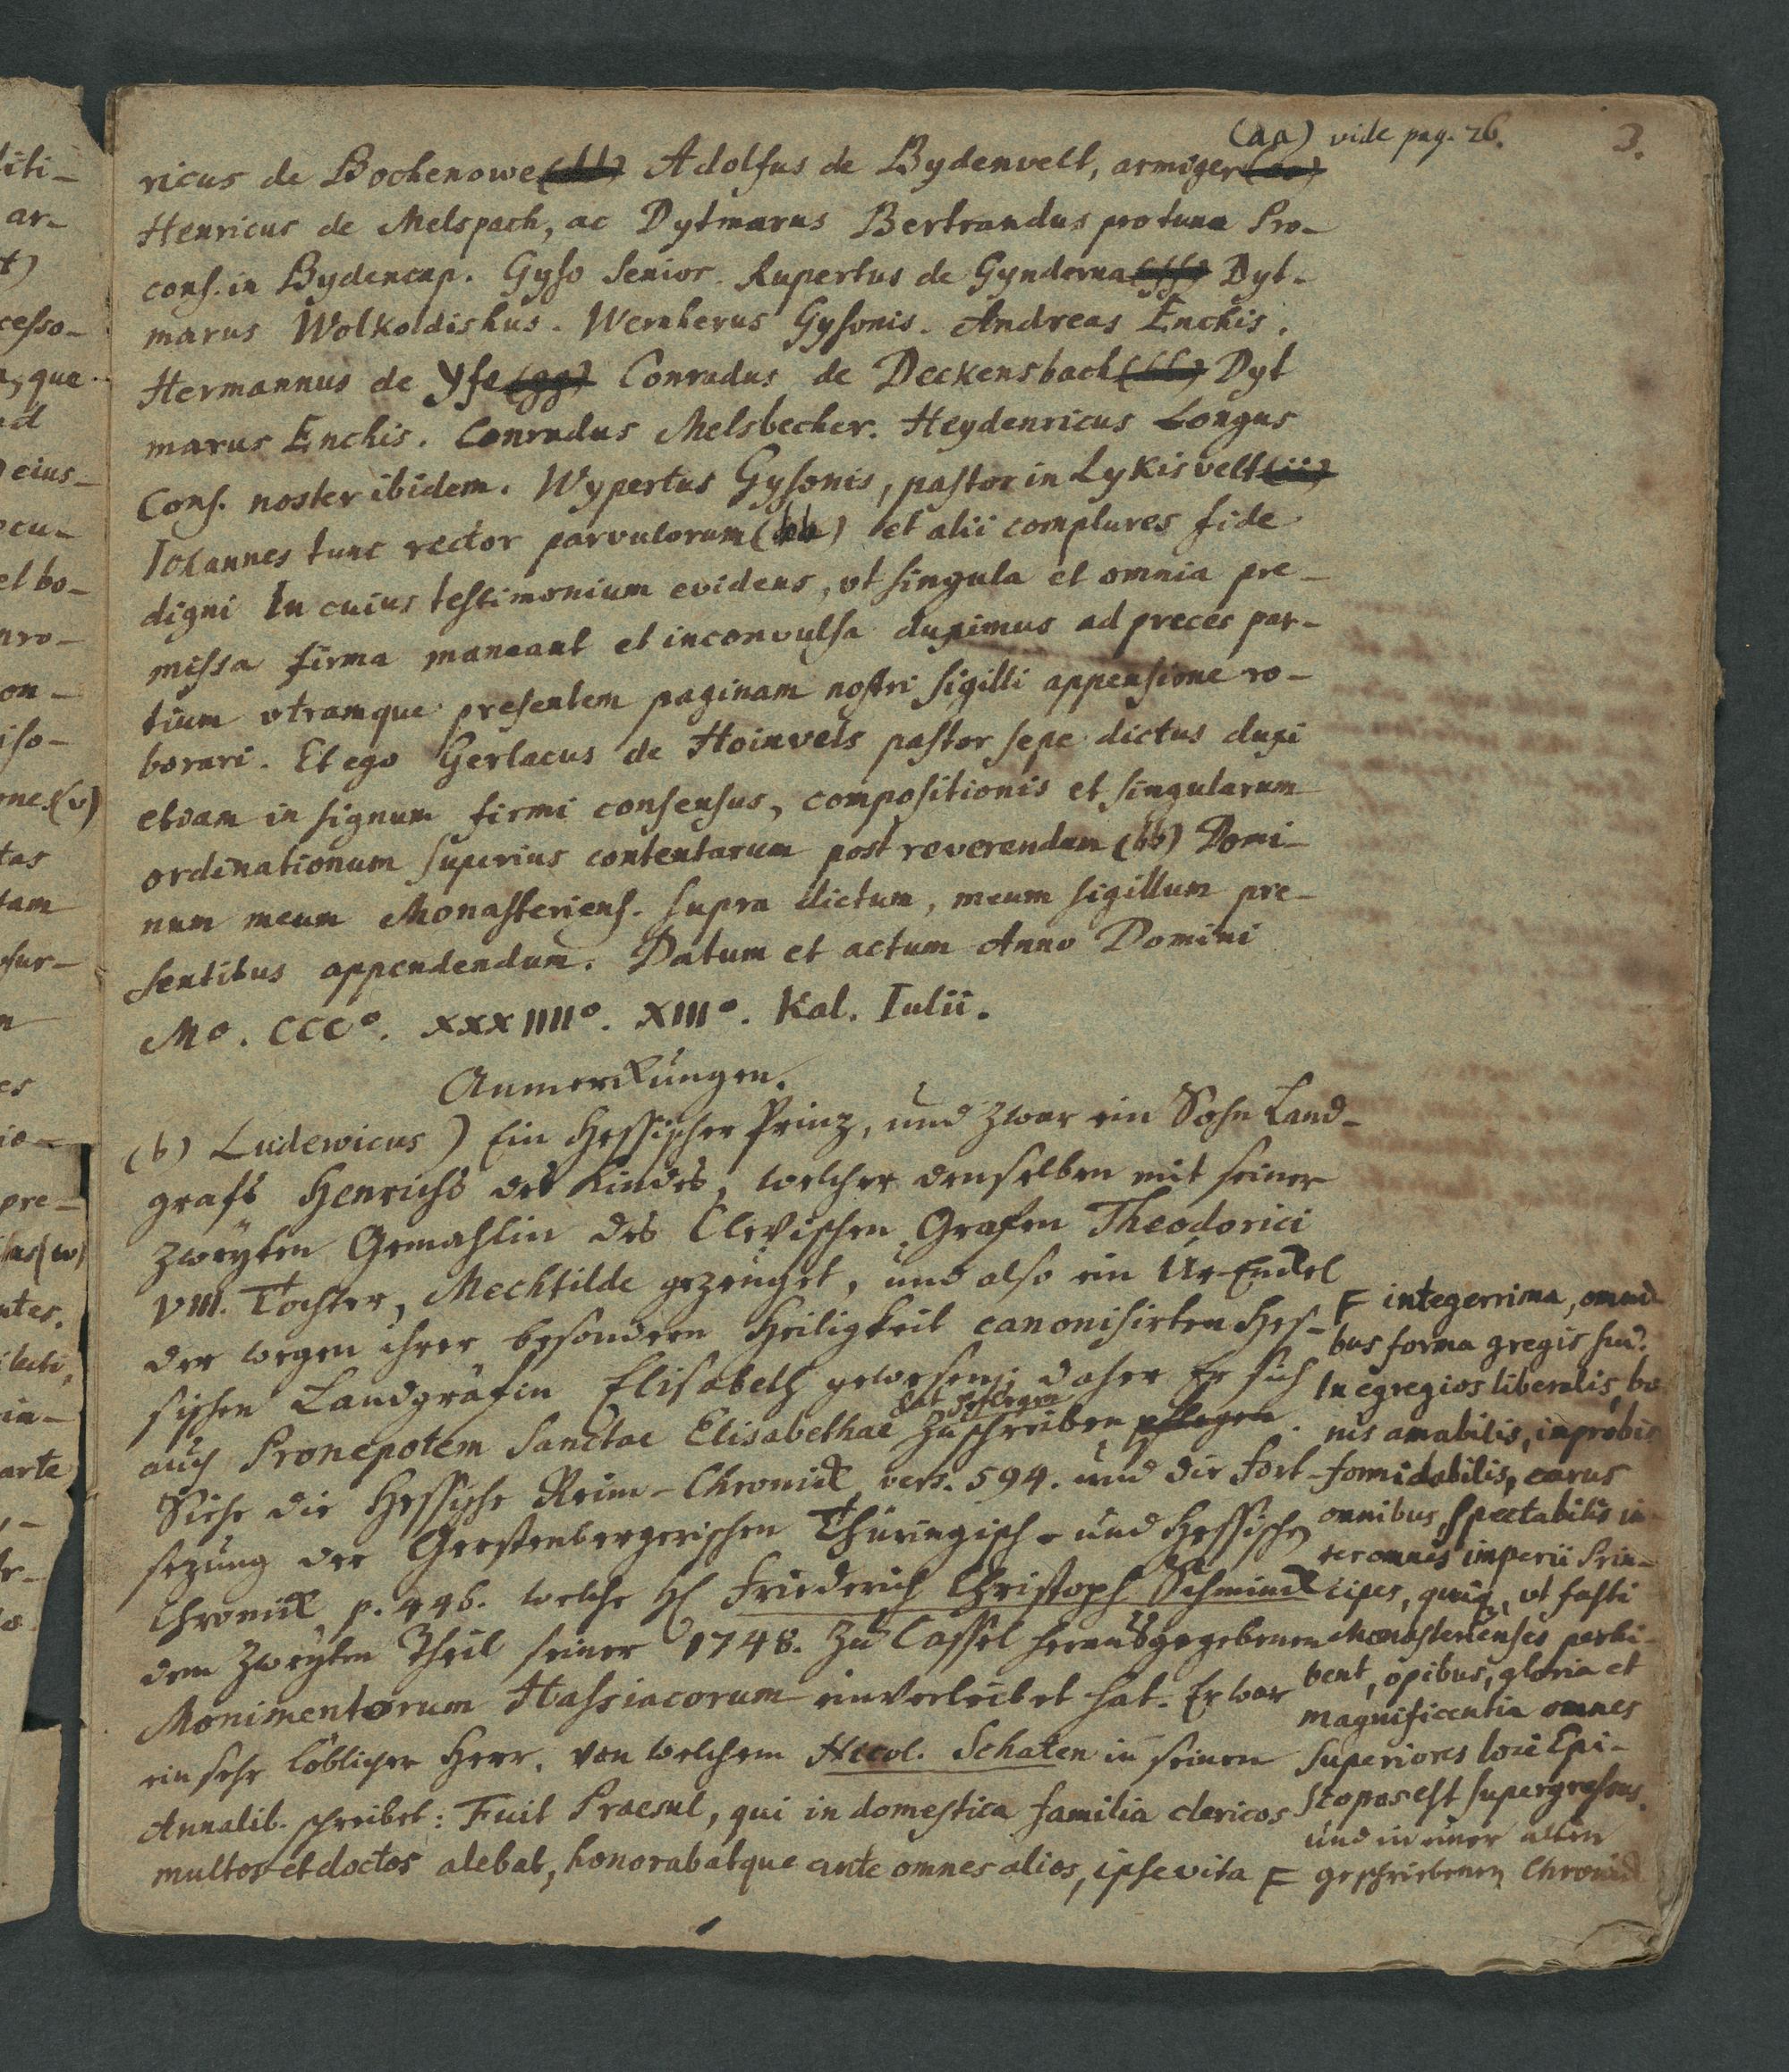 (aa) vide pag. 26.
3.
ricus de Bochenowe (dd) Adolfus de Bydenvelt, armiger (ee)
Henricus de Melspach, ac Dytmarus Bertrandus protunc Pro-
cons. in Bydencap. Gyso Senior. Rupertus de Gynderna (ff) Dyt-
marus Wolkoldishus. Wernherus Gysonis. Andreas Enchis.
Hermannus de Yfe (gg) Conradus de Deckensbach (hh) Dyt
marus Enchis. Conradus Melsbecher. Heydenricus Longus
Cons. noster ibidem. Wypertus Gysonis, pastor in Lykisvelt (ii)
Iohannes tunc rector parvulorum (bb) et alii complures fide
digni In cuius testimonium evidens, vt singula et omnia pre-
missa firma maneant et inconvulsa duximus ad preces par-
tium vtramque presentem paginam nostri sigilli appensione ro-
borari. Et ego Gerlacus de Hoinvels pastor sepe dictus duxi
etiam in signum firmi consensus, compositionis et singularum
ordinationum superius contentarum post reverendum (bb) Domi-
num meum Monasteriens. supra dictum, meum sigillum pre-
sentibus appendendum. Datum et actum Anno Domini
Mo. CCCo. XXXIIIIo. XIIIo. Kal. Iulii.
Anmerckungen.
(b) Ludewicus) Ein Hessischer Prinz, und zwar ein Sohn Land-
grafs Henrichs des Kindes, welcher denselben mit seiner
zweyten Gemahlin des Clevischen Grafen Theodorici
VIII. Tochter, Mechtilde gezeuget, und also ein Ur-Enckel
der wegen ihrer besondern Heiligkeit canonisirten Hes-
sischen Landgräfin Elisabeth gewesen; daher Er sich
auch Pronepotem Sanctae Elisabethae zu schreiben pflegen.
hat pflegen
Siehe die Hessische Reim-Chronick vers. 594. und die Fort-
sezung der Gerstenbergerischen Thüringisch- und Hessischen
Chronick p. 446. welche H Friederich Christoph Schminck
dem zweyten Theil seiner 1748. zu Cassel herausgegebenen
Monimentorum Hassiacorum einverleibet hat. Er war
ein sehr löblicher Herr, von welchem Nicol. Schaten in seinen
Annalib. schreibet: Fuit Praesul, qui in domestica familia clericos
multos et doctos alebat, honorabatque ante omnes alios, ipse vita F
F integerrima, omni-
bus forma gregis fuit.
In egregios liberalis, bo
nis amabilis, improbis
formidabilis, carus
omnibus, spectabilis in-
ter omnes imperii Prin-
cipes, quiq, vt fasti
Monasterienses perhi-
bent, opibus, gloria et
magnificentia omnes
superiores loci Epi-
scopos est supergressus.
und in einer alten
geschriebenen Chronick